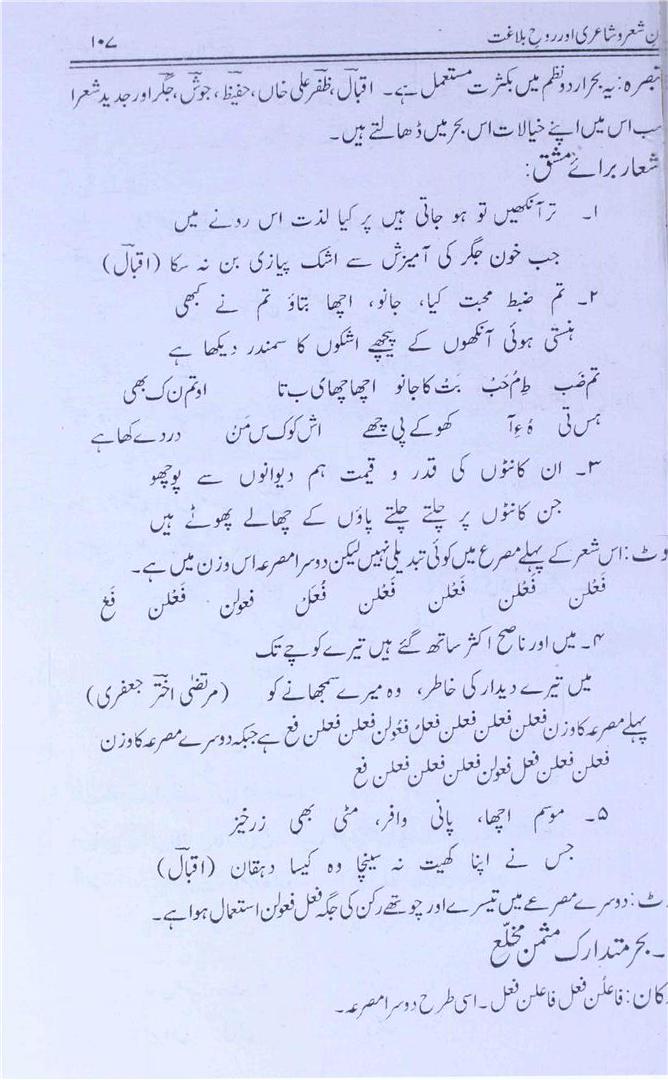 نِ شعر و شاعری اور روحِ بلاغت ۱۰۷
تبصرہ: یہ بحر اردو نظم میں بکثرت مستعمل ہے۔ اقبالؔ، ظفرؔ علی خاں، حفیظؔ، جوشؔ، جگرؔ اور جدید شعرا
سب اس میں اپنے خیالات اس بحر میں ڈھالتے ہیں۔
شعار برائے مشق:
۱۔ تر آنکھیں تو ہو جاتی ہیں پر کیا لذت اس رونے میں
جب خون جگر کی آمیزش سے اشک پیازی بن نہ سکا (اقبالؔ)
۲۔ تم ضبط محبت کیا، جانو، اچھا بتاؤ تم نے کبھی
ہنستی ہوئی آنکھوں کے پیچھے اشکوں کا سمندر دیکھا ہے
تم ضَب طِ مُ حَبْ بَتْ کا جانو اچھا چھا ی ب تا او تم ن ک بھی
ہس تی ہُ ءِ آ کھو کے پی چھے اش کو ک س مَنْ در دے کھا ہے
۳۔ ان کانٹوں کی قدر و قیمت ہم دیوانوں سے پوچھو
جن کانٹوں پر چلتے چلتے پاؤں کے چھالے پھوٹے ہیں
وٹ: اس شعر کے پہلے مصرع میں کوئی تبدیلی نہیں لیکن دوسرا مصرعہ اس وزن میں ہے۔
فَعْلن فَعْلن فَعْلن فَعْلن فُعَلُ فعولن فَعْلن فَعْ
۴۔ میں اور ناصح اکثر ساتھ گئے ہیں تیرے کوچے تک
میں تیرے دیدار کی خاطر، وہ میرے سمجھانے کو (مرتضیٰ اخترؔ جعفری)
پہلے مصرعہ کا وزن فعلن فعلن فعلن فعلُ فعولن فعلن فعلن فع ہے جبکہ دوسرے مصرعہ کا وزن
فعلن فعلن فعل فعولن فعلن فعلن فعلن فع
۵۔ موسم اچھا، پانی وافر، مٹی بھی زرخیز
جس نے اپنا کھیت نہ سینچا وہ کیسا دہقان (اقبالؔ)
ٹ: دوسرے مصرعے میں تیسرے اور چوتھے رکن کی جگہ فعل فعولن استعمال ہوا ہے۔
۔ بحر متدارک مثمن مخلّع
کان: فاعلُن فعل فاعلن فعل۔ اسی طرح دوسرا مصرعہ۔